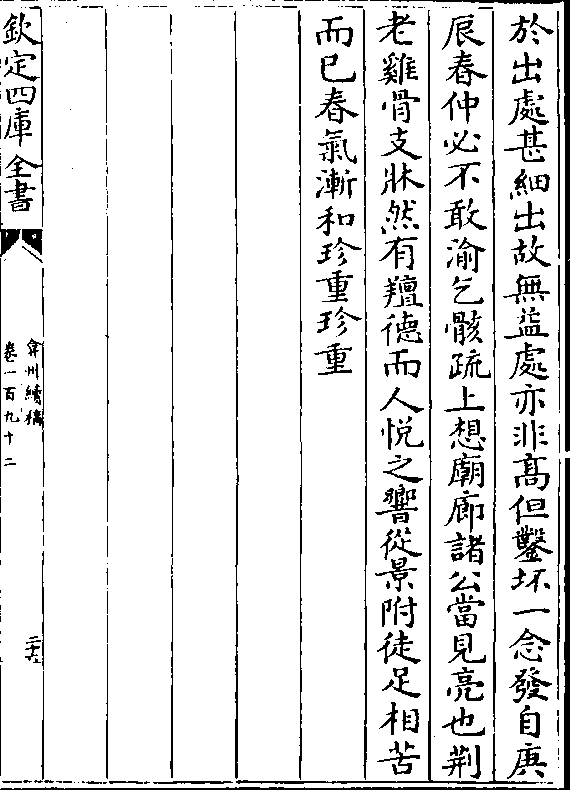 於出處甚細出故無益處亦非髙但鑿坏一念發自庚
辰春仲必不敢渝乞骸疏上想廟廊諸公當見亮也荆
老雞骨支牀然有羶德而人悦之響從景附徒足相苦
而已春氣漸和珍重珍重
欽定四庫全書
弇州續稿
卷一百九十二
二十六